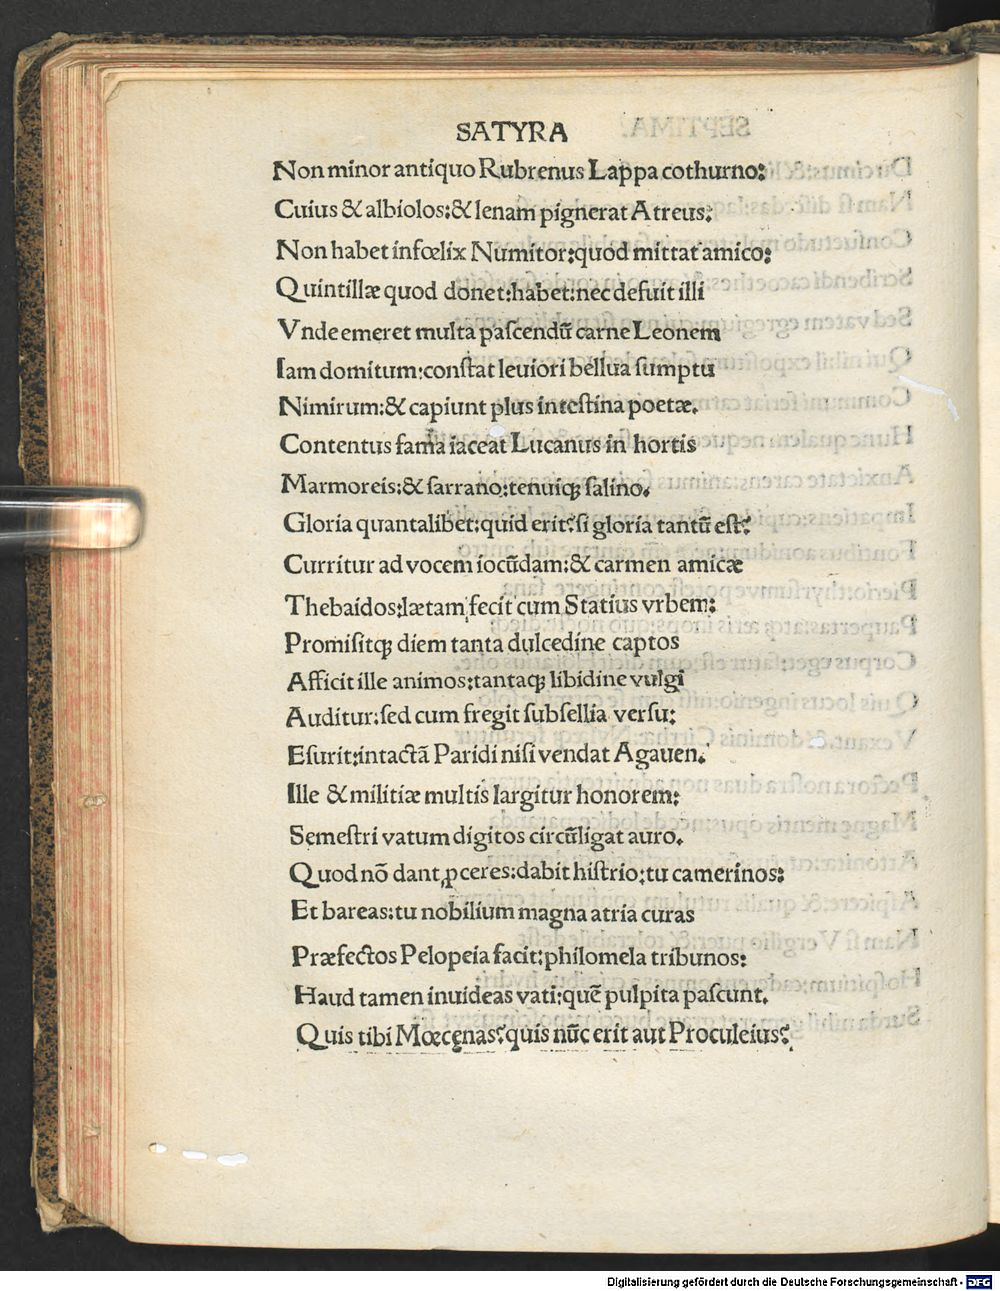 SATYRA
Non minor antiquo Rubrenus Lappa cothurno:
Cuius & albiolos:& lenam pignerat Atreus:
Non habet infœlix Numitor:quod mittat amico:
Quintillæ quod donet:habet:nec defuit illi
Vnde emeret multa paſcendū carne Leonem
Iam domitum:conſtat leuiori bellua ſumptu
Nimirum:& capiunt plus inteſtina poetæ.
Contentus fama iaceat Lucanus in hortis
Marmoreis:& ſarrano:tenuiqꝫ ſalino.
Gloria quantalibet:quid erit?ſi gloria tantū eſt?
Curritur ad vocem iocūdam:& carmen amicæ
Thebaidos:lætam fecit cum Statius vrbem:
Promiſitqꝫ diem tanta dulcedine captos
Afficit ille animos:tantaqꝫ libidine vulgi
Auditur:ſed cum fregit ſubſellia verſu:
Eſurit:intactā Paridi niſi vendat Agauen.
Ille & militiæ multis largitur honorem:
Semeſtri vatum digitos circūligat auro.
Quod nō dant ꝓceres:dabit hiſtrio:tu camerinos:
Et bareas:tu nobilium magna atria curas
Præfectos Pelopeia facit:philomela tribunos:
Haud tamen inuideas vati:quē pulpita paſcunt.
Quis tibi Mœcęnas?quis nūc erit aut Proculeius?
Digitalisierung gefördert durch die Deutsche Forschungsgemeinschaft - DFG